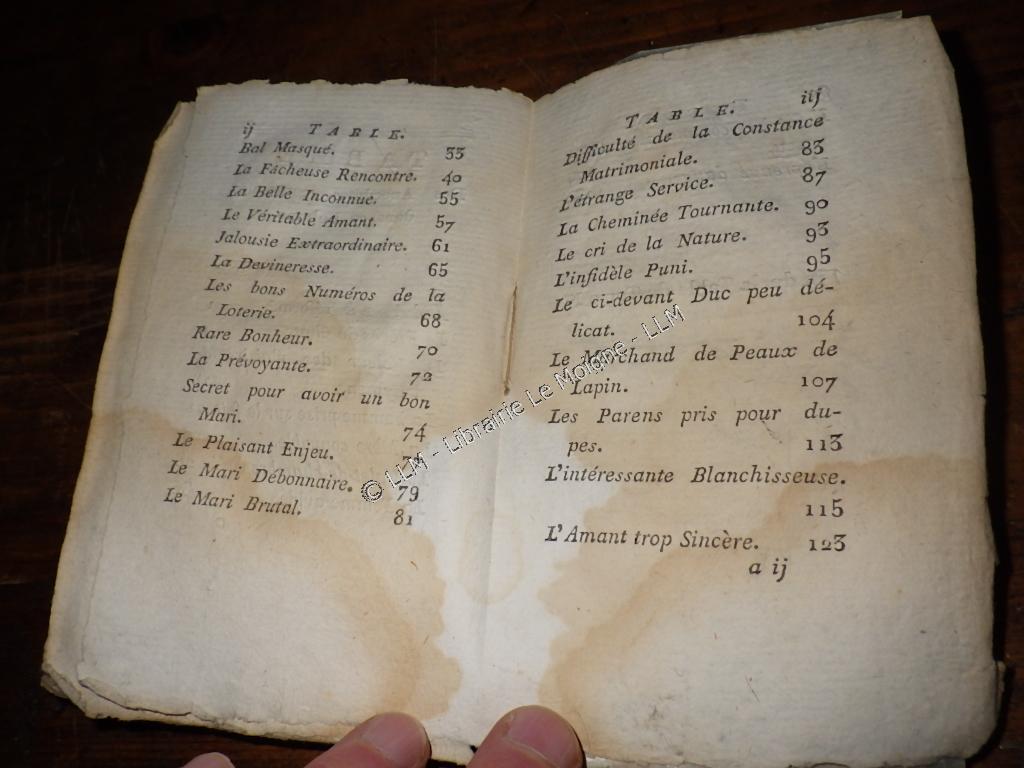 ij TABLE.
Bal Masqué. 33
La Fâcheuse Rencontre. 40
La Belle Inconnue. 55
Le Véritable Amant. 57
Jalousie Extraordinaire. 61
La Devineresse. 65
Les bons Numéros de la
Loterie. 68
Rare Bonheur. 70
La Prévoyante. 72
Secret pour avoir un bon
Mari. 74
Le Plaisant Enjeu.
Le Mari Débonnaire. 79
Le Mari Brutal. 81
TABLE. iij
Difficulté de la Constance
Matrimoniale. 83
L'étrange Service. 87
La Cheminée Tournante. 90
Le cri de la Nature. 93
L'infidèle Puni. 95
Le ci-devant Duc peu dé-
licat. 104
Le Marchand de Peaux de
Lapin. 107
Les Parens pris pour du-
pes. 113
L'intéressante Blanchisseuse.
115
L'Amant trop Sincère. 123
a ij
© LLM - Librairie Le Moigne - LLM